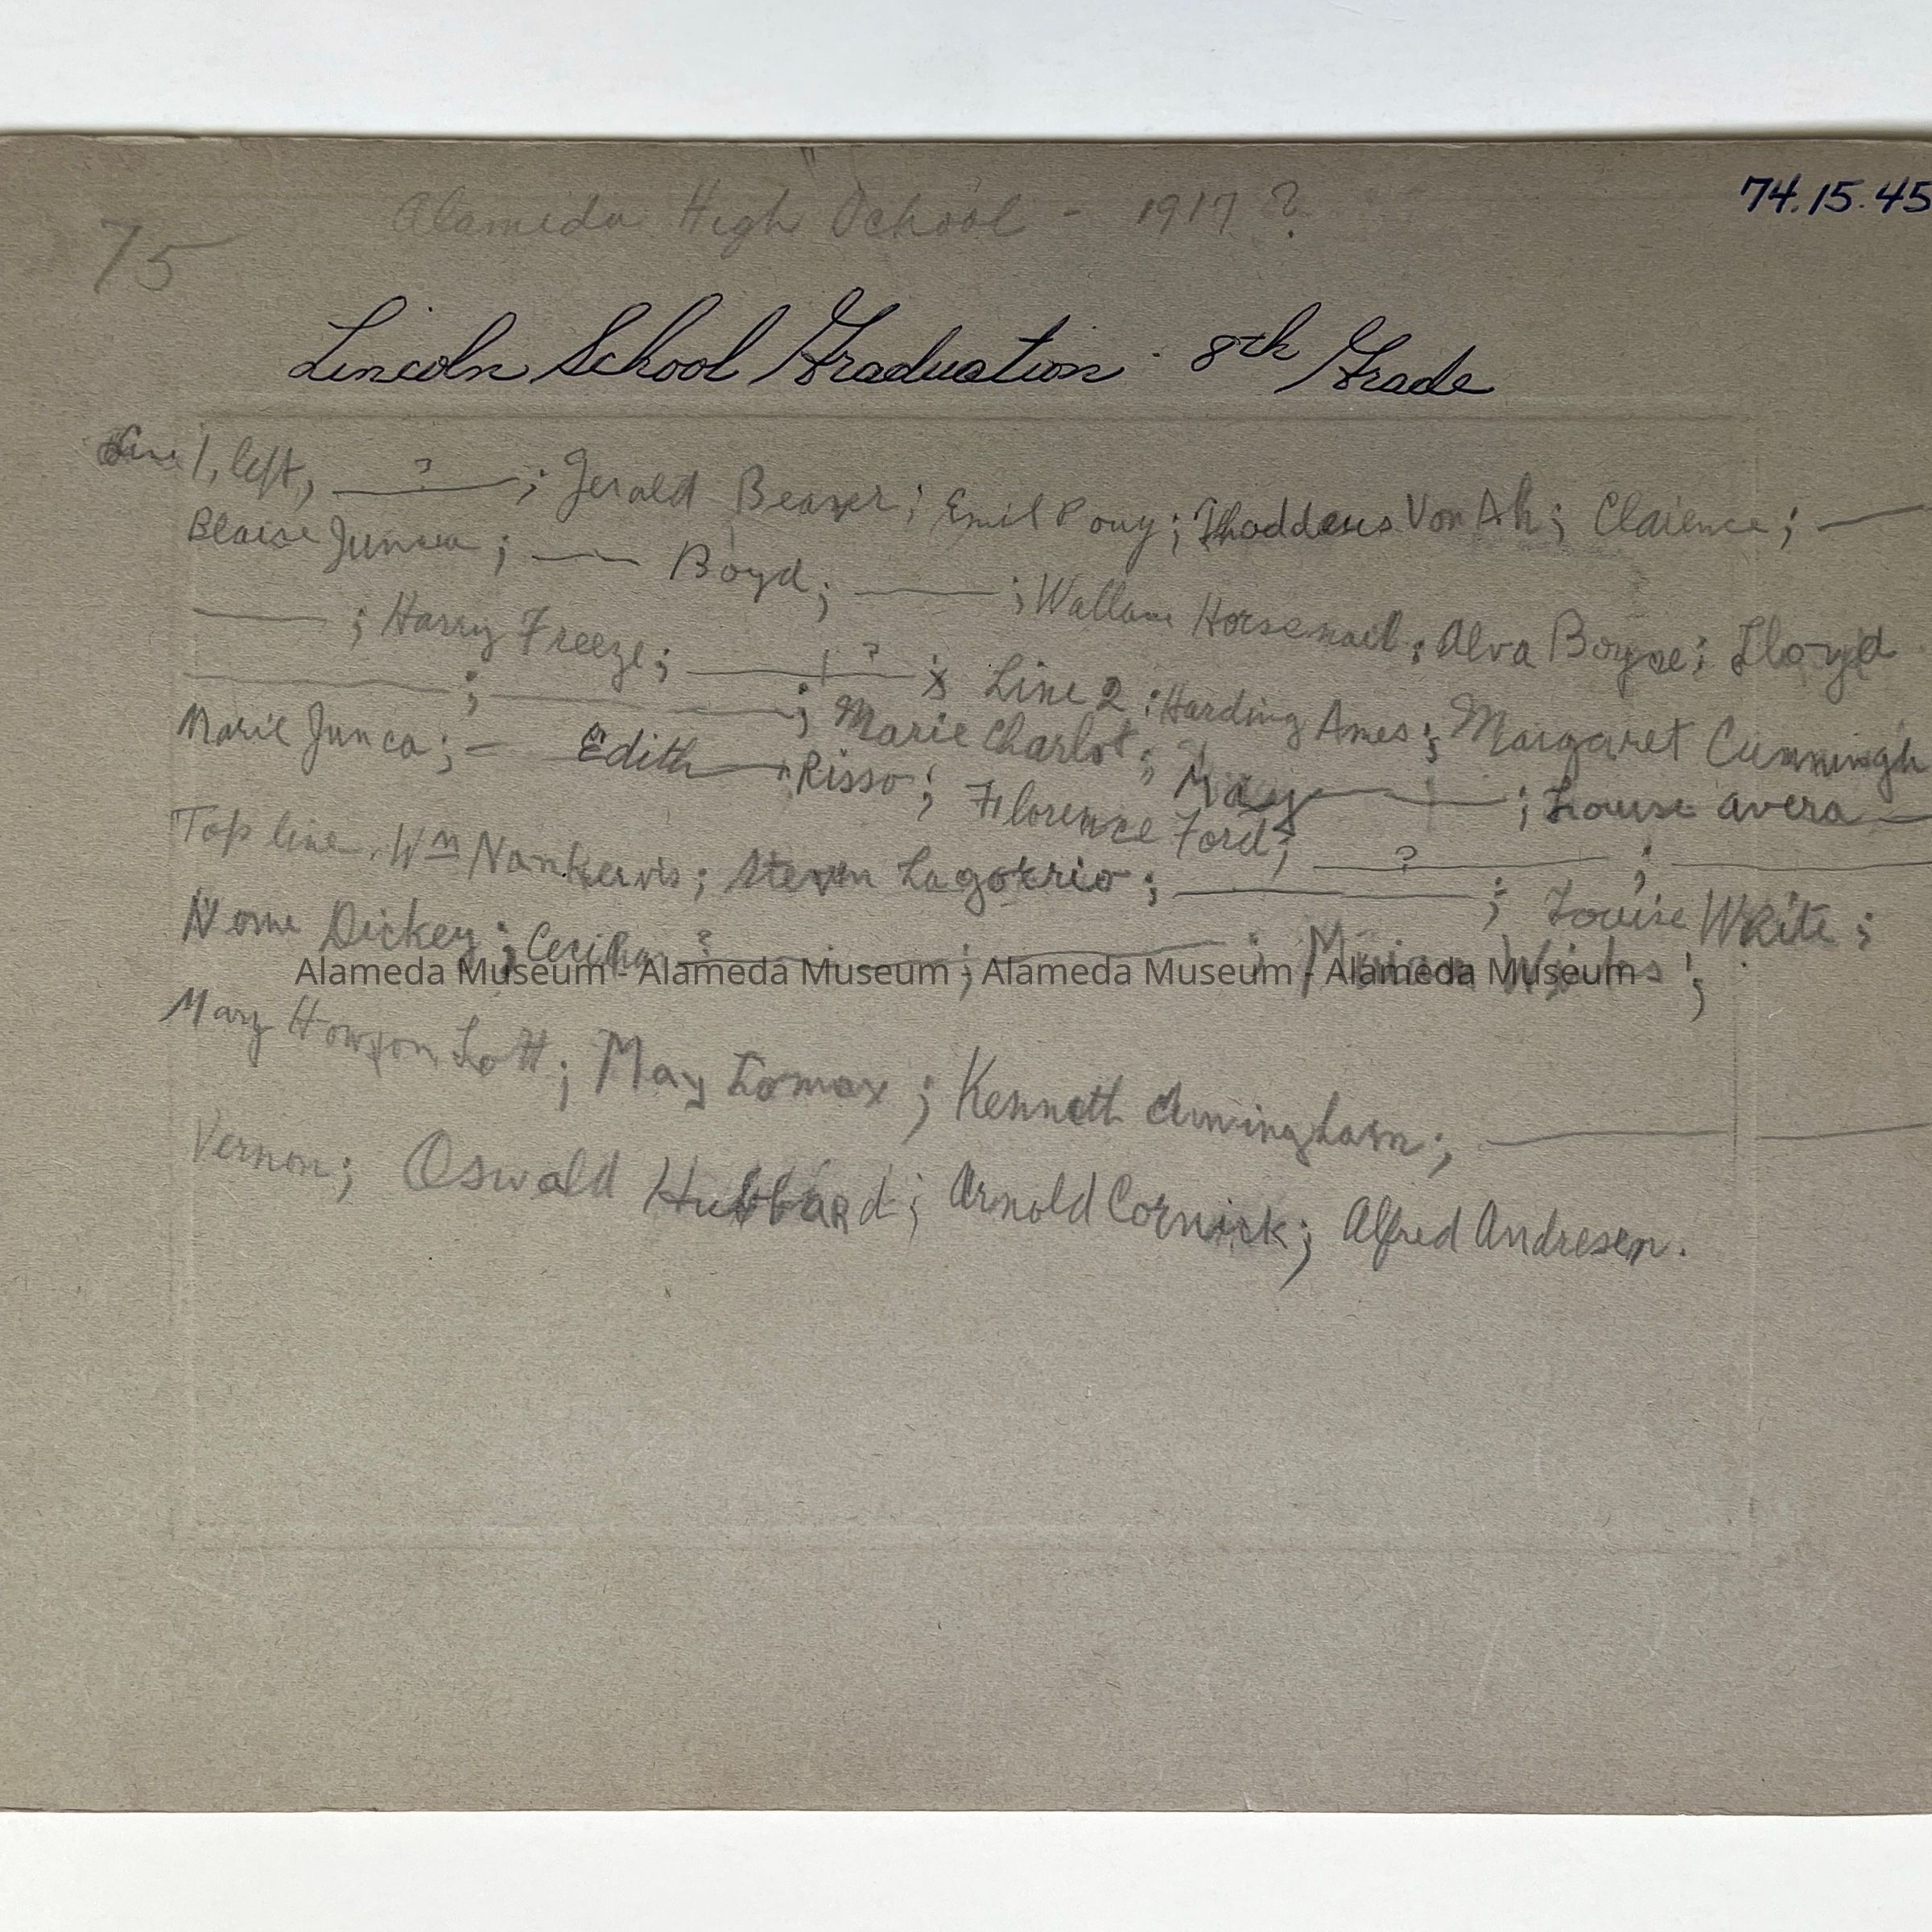 74.15.45
Alameda High School - 1917 ?
75
Lincoln School Graduation - 8th Grade
Line 1, left, ___?___; Jerald Beaver; Emil Pouy; Thaddeus Von Ah; Clarence; ___
Blaise Junca; ___ Boyd; ___; Wallace Horsenail; Alva Boyse; Lloyd
___; Harry Freeze; ___?___; Line 2: Harding Ames; Margaret Cunningh
___; ___; Marie Charlot; May ___; Louise Avera ___
Marie Junca; — Edith — Risso; Florence Ford; ___?___; ___
Top line, Wm Nankervis; Steven Lagorrio; ___; Louise White;
Norme Dickey; Cecilia ?___; ___;
Alameda Museum - Alameda Museum - Alameda Museum - Alameda Museum
Mary Lott; May Lomax; Kenneth Cunningham; ___
Vernon; Oswald Hubbard; Arnold Cornick; Alfred Andresen.